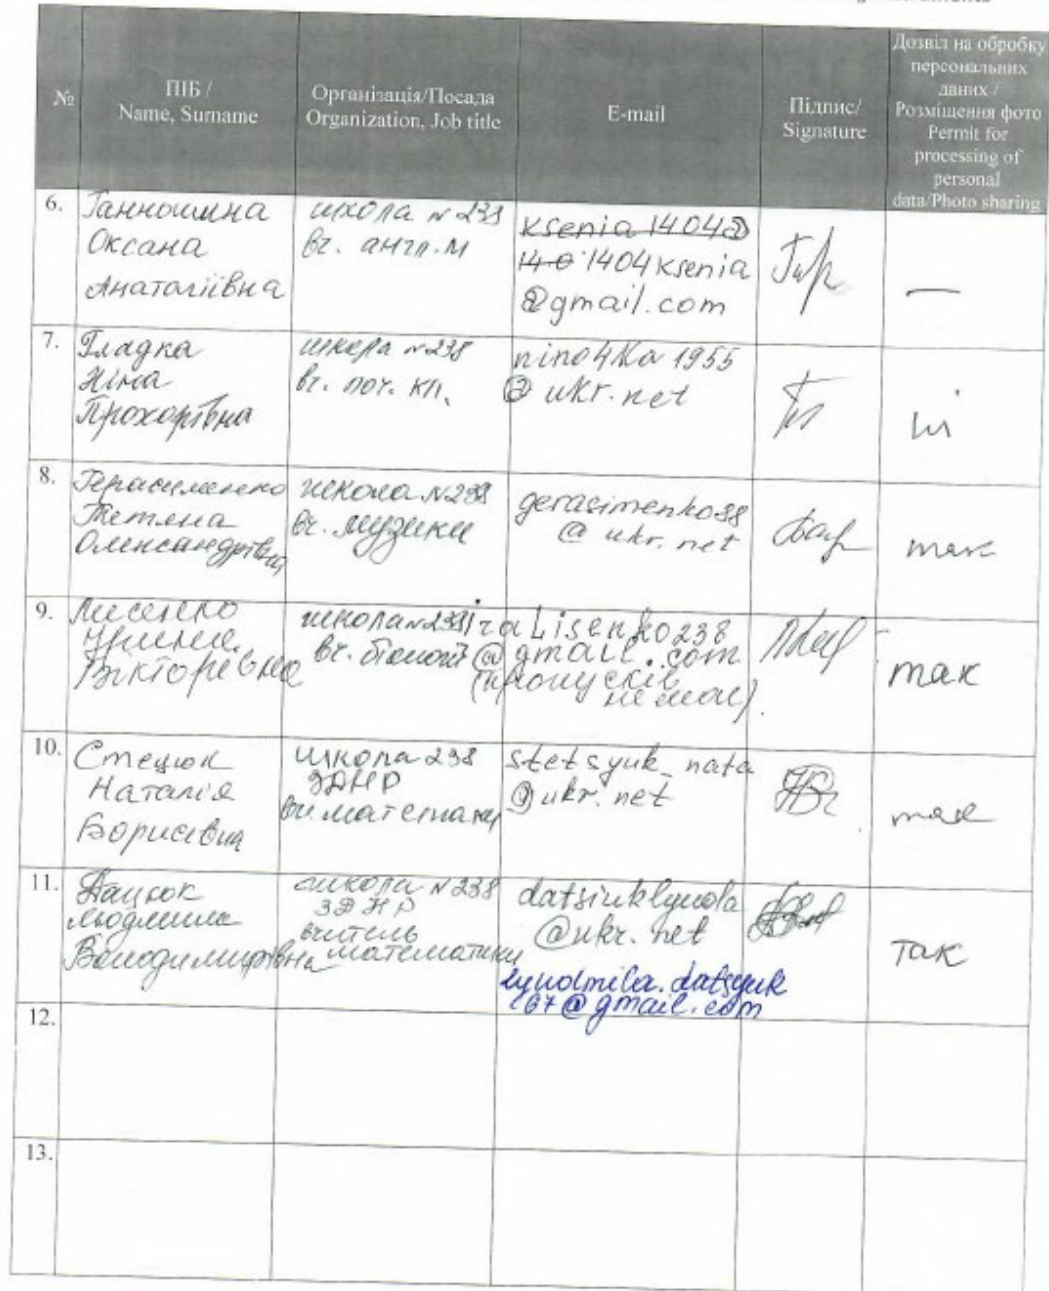 №
ПІБ /
Name, Surname
Організація/Посада
Organization, Job title
E-mail
Підпис/
Signature
Дозвіл на обробку
персональних
даних /
Розміщення фото
Permit for
processing of
personal
data/Photo sharing
6.
Оксана
Анатоліївна
школа №
вч. англ. м
ksenia 1404@
14 0 1404ksenia
@gmail.com
—
7.
Гладка
Ніна
Прохорівна
школа №238
вч. поч. кл.
nino4ka 1955
@ ukr.net
ні
8.
Герасименко
Тетяна
Олександрівна
школа №238
вч. музики
gerasimenko38
@ ukr.net
так
9.
Лисенко
Вікторівна
школа №238
вч. біології
iraLisenko238
@gmail.com
(пропусків
немає).
так
10.
Стецюк
Наталія
Борисівна
школа 238
ЗДНР
вч. математики
stetsyuk_nata
@ukr.net
так
11.
Дацюк
Людмила
Володимирівна
школа №238
ЗДНР
вчитель
математики
@ukr.net
lyudmila.datsyuk
67@gmail.com
так
12.
13.